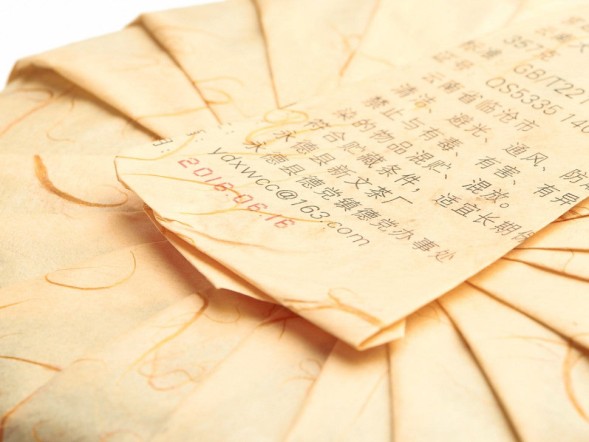 357克
GB/T221
QS5335 140
云南省临沧市
清洁、避光、通风、防
禁止与有毒、有害、有异
染的物品混贮、混放。
符合贮藏条件，适宜长期
永德县新文茶厂
永德县德党镇德党办事处
ydxwcc@163.com
2016-06-16